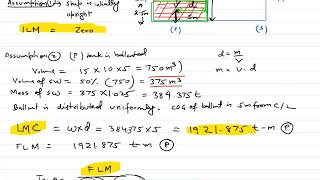 Assumption① → ship is initially
upright
ILM = Zero
2.5m
d
(P) (S)
Assumption② (P) tank is ballasted
Volume = 15 x 10 x 5 = 750 m³
Volume of SW = 50% (750) = 375 m³
Mass of SW = 375 x 1.025 = 384.375 t
d = m/v
m = v·d
Ballast is distributed uniformly. COG of ballast is 5m from C/L
LMC = w x d = 384.375 x 5 = 1921.875 t-m (P)
FLM = 1921.875 t-m (P)
FLM